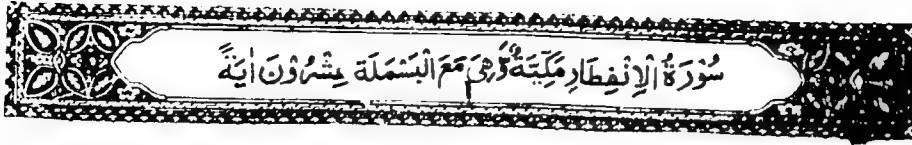 سُوْرَةُ الْاِنْفِطَارِ مَكِّيَّةٌ وَّهِيَ مَعَ الْبَسْمَلَةِ عِشْرُوْنَ اٰيَةً